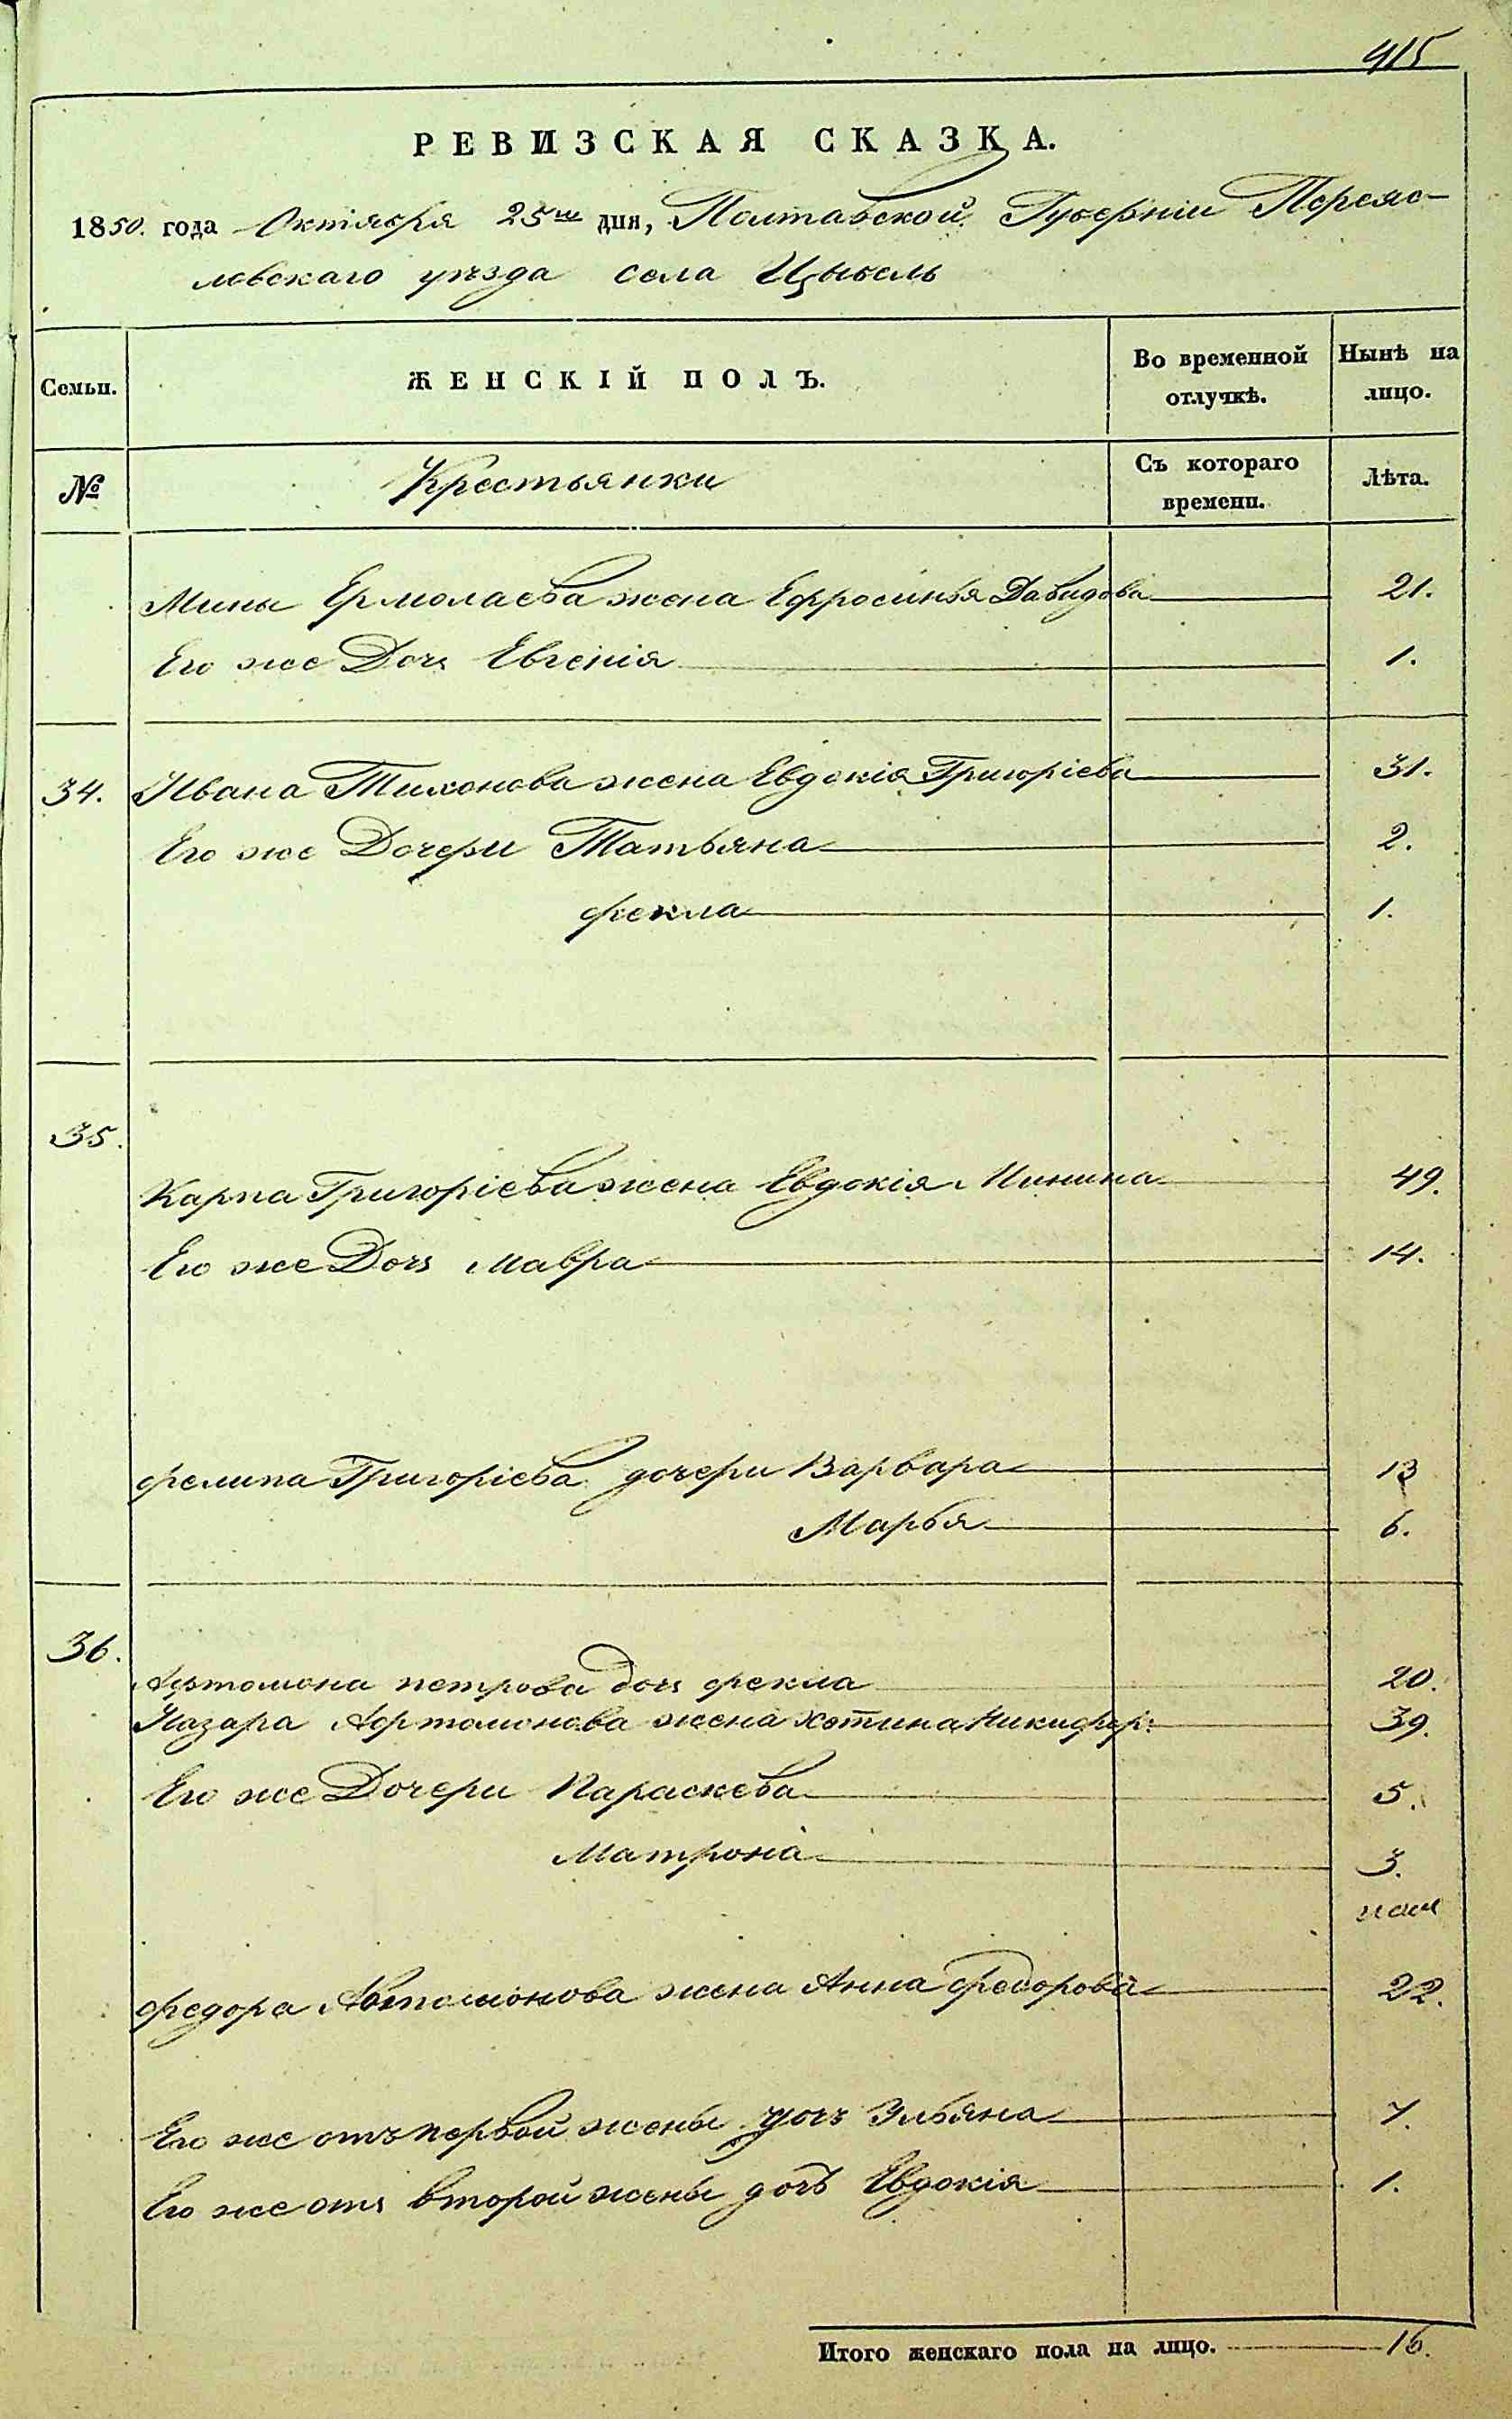 415
РЕВИЗСКАЯ СКАЗКА.
1850. года Октября 25го дня, Полтавской Губерніи Переяс-
лавскаго уѣзда села Цыбель
Семьи. ЖЕНСКІЙ ПОЛЪ. Во временной отлучкѣ. Нынѣ на лицо.
№ Крестьянки Съ котораго времени. Лѣта.
Мины Ермолаева жена Ефросинья Давидова 21.
Его же Дочь Евгенія 1.
34. Ивана Тихонова жена Евдокія Григоріева 31.
Его же Дочери Татьяна 2.
Фекла 1.
35.
Карпа Григоріева жена Евдокія Минина 49.
Его же Дочь Мавра 14.
Филипа Григоріева дочери Варвара 13
Марья 6.
36.
Артомона петрова дочь фекла 20.
Назара Артомонова жена Хотина Никифор: 39.
Его же Дочери Параскева 5.
Матрона 3.
федора Автомонова жена Анна федорова 22.
Его же отъ первой жены дочь Ульяна 7.
Его же отъ второй жены дочь Евдокія 1.
Итого женскаго пола на лицо. 16.